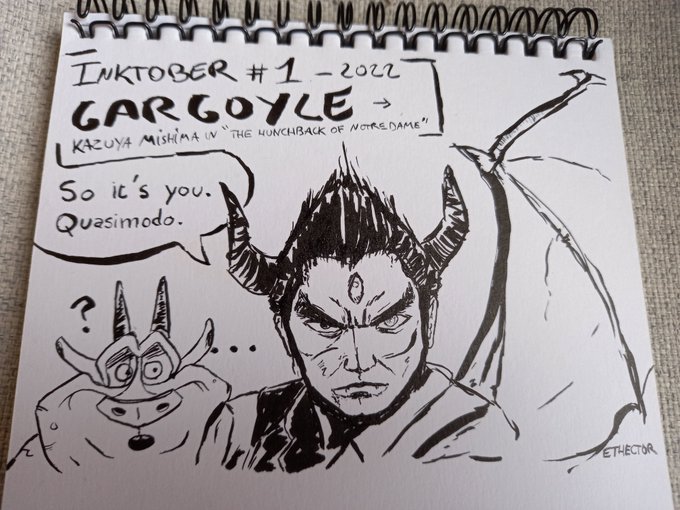 INKTOBER #1 - 2022
GARGOYLE →
KAZUYA MISHIMA IN "THE HUNCHBACK OF NOTREDAME"
So it's you.
Quasimodo.
?
...
ETHECTOR